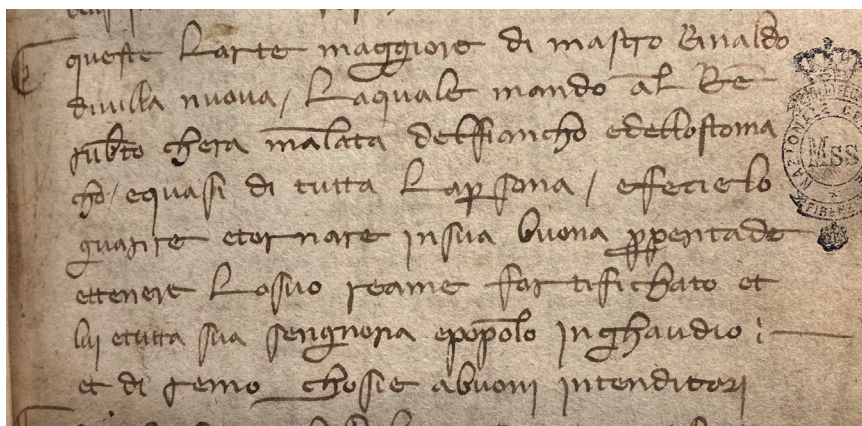 queste Larte maggiore di mastro Rinaldo
divilla nuova / Laquale mando al Re
rubto chera malata delfiancho edellostoma
cho / equasi di tutta Lapsona / efecielo
guarire etornare insua buona
ettenere Losuo reame fortifichato et
lui etutta sua sengnoria epopolo inghaudio :
et di remo chosie abuoni intenditori
MSS